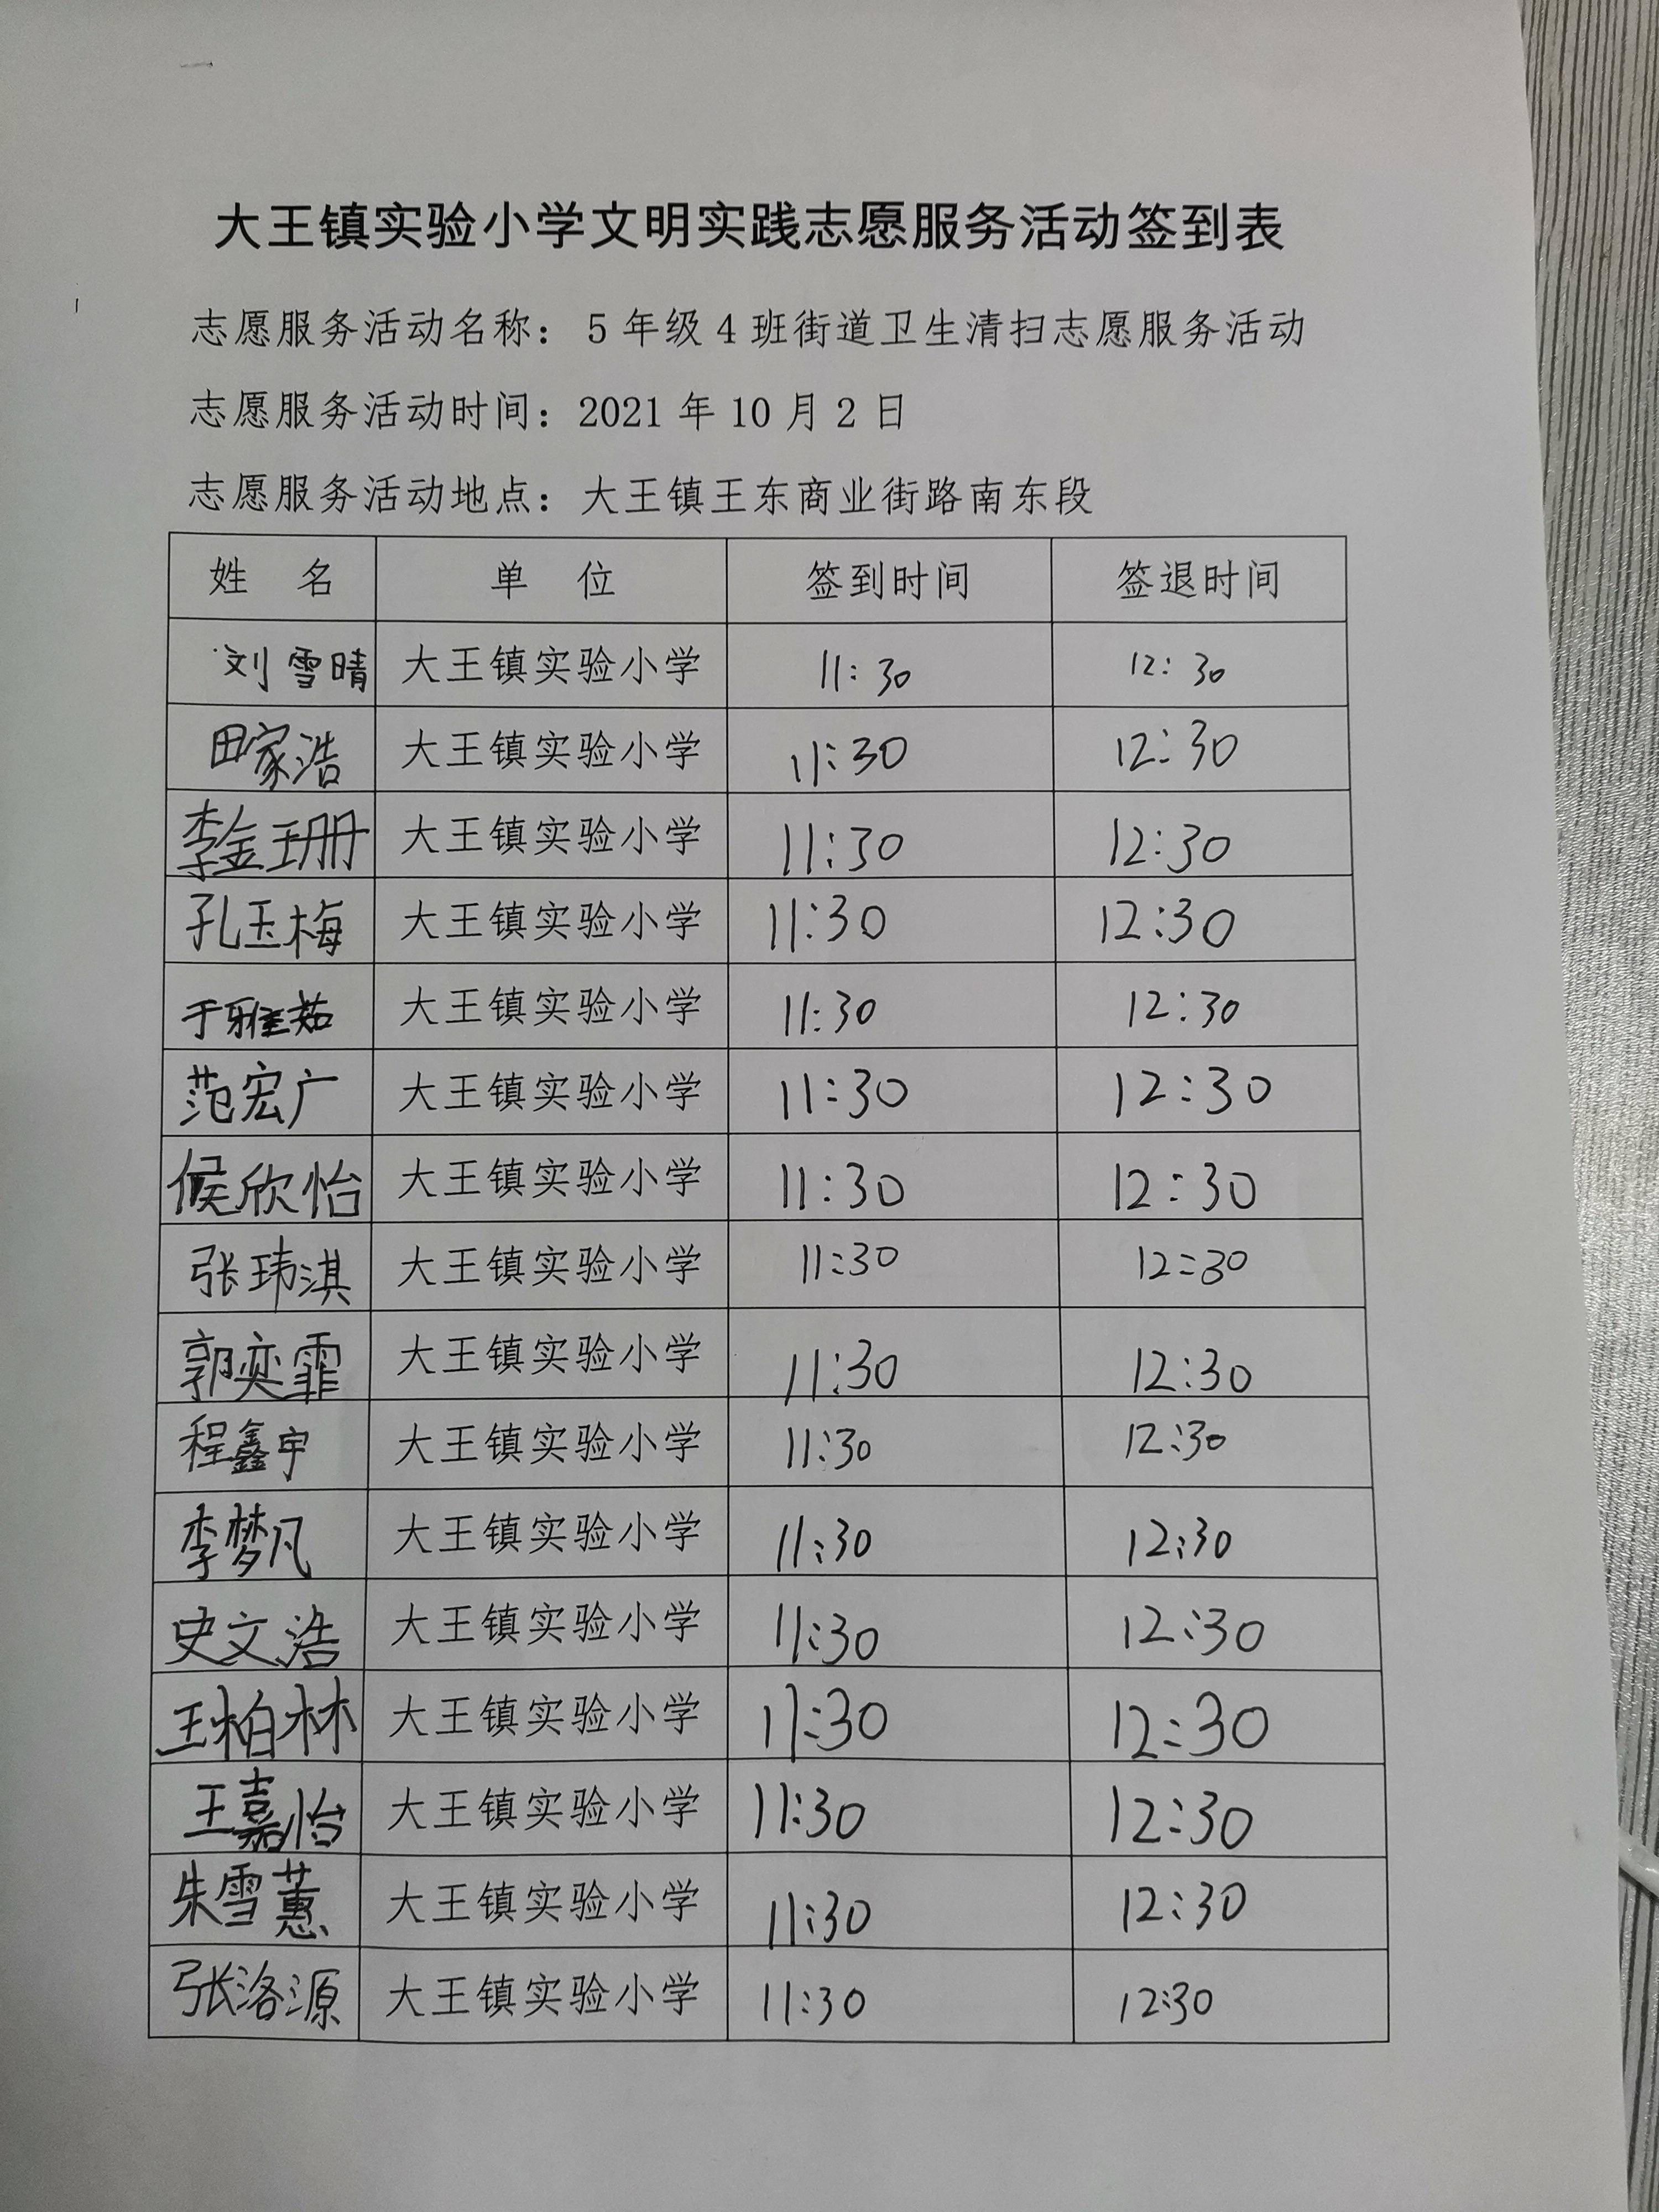 大王镇实验小学文明实践志愿服务活动签到表
志愿服务活动名称：5年级4班街道卫生清扫志愿服务活动
志愿服务活动时间：2021年10月2日
志愿服务活动地点：大王镇王东商业街路南东段
姓 名 单 位 签到时间 签退时间
刘雪晴 大王镇实验小学 11:30 12:30
田家浩 大王镇实验小学 11:30 12:30
李金珊 大王镇实验小学 11:30 12:30
孔玉梅 大王镇实验小学 11:30 12:30
于雅茹 大王镇实验小学 11:30 12:30
范宏广 大王镇实验小学 11:30 12:30
候欣怡 大王镇实验小学 11:30 12:30
张玮淇 大王镇实验小学 11:30 12:30
郭奕霏 大王镇实验小学 11:30 12:30
程鑫宇 大王镇实验小学 11:30 12:30
李梦凡 大王镇实验小学 11:30 12:30
史文浩 大王镇实验小学 11:30 12:30
王柏林 大王镇实验小学 11:30 12:30
王嘉怡 大王镇实验小学 11:30 12:30
朱雪蕙 大王镇实验小学 11:30 12:30
张洛源 大王镇实验小学 11:30 12:30